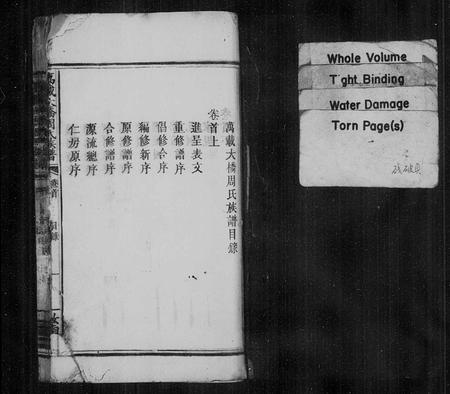 萬載大橋周氏族譜目錄
卷首上
進呈表文
重修譜序
倡修合序
編修新序
原修譜序
合修譜序
源流總序
仁房原序
卷首
目錄
Whole Volume
Tight Binding
Water Damage
Torn Page(s)
残破頁